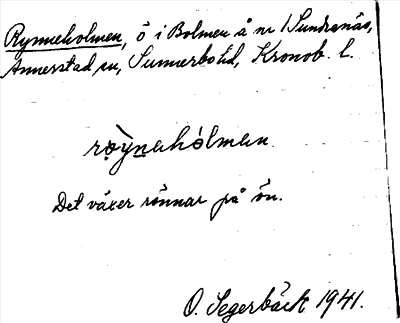 Rynneholmen, ö i Bolmen å nr 1 Sundranäs,
Annerstad sn, Sunnerbo hd, Kronob. l.
rø̀yneholmen.
Det växer rönnar på ön.
O. Segerbäck 1941.